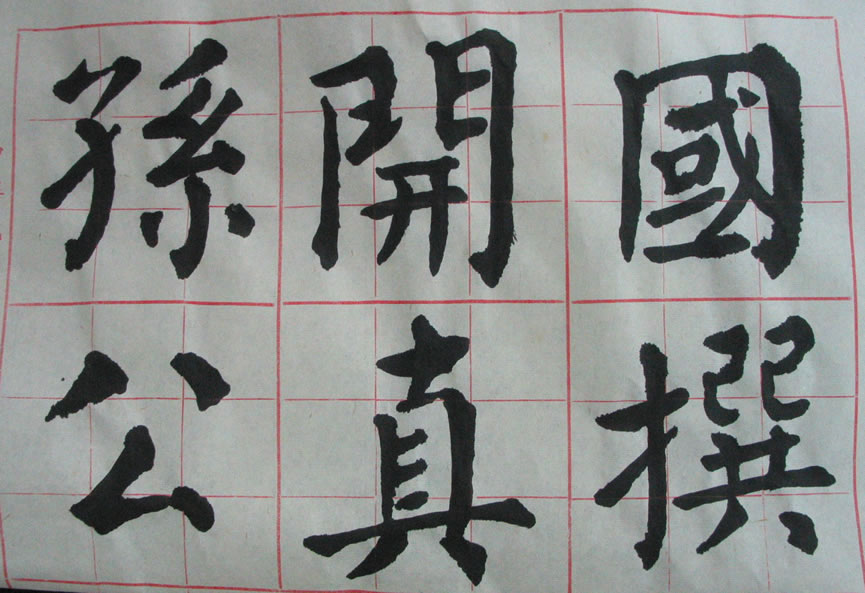 孫開國
公真撰